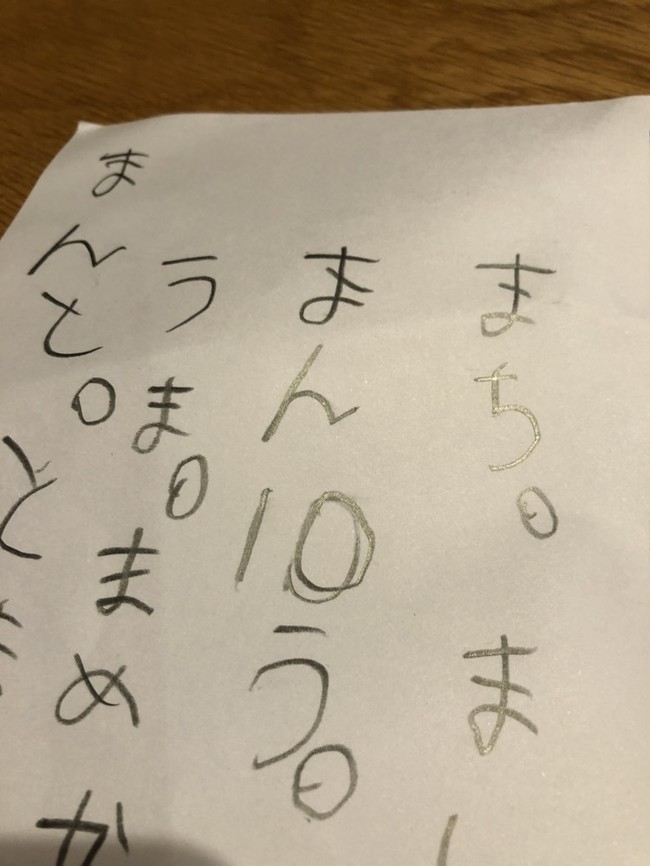 まち。ま
まん10う。
うま。まめか
まんと。と